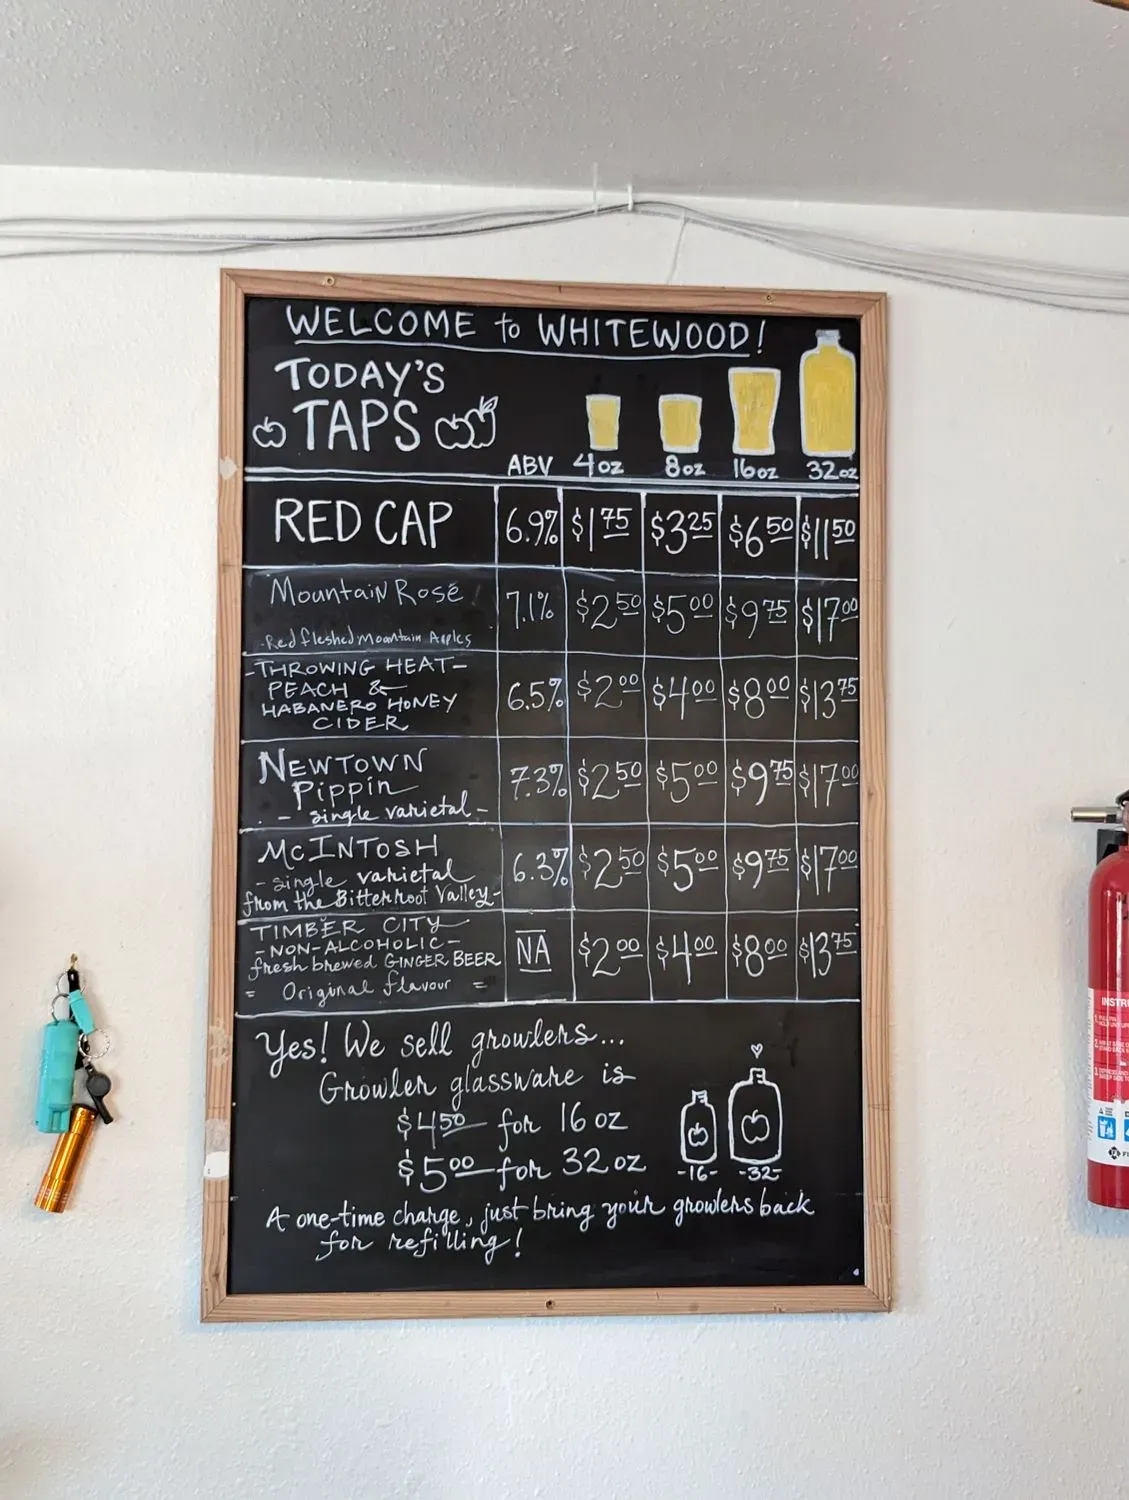 WELCOME to WHITEWOOD!
TODAY'S
TAPS
ABV 4oz 8oz 16oz 32oz
RED CAP 6.9% $1.75 $3.25 $6.50 $11.50
Mountain Rosé 7.1% $2.50 $5.00 $9.75 $17.00
-Red fleshed Mountain Apples
-THROWING HEAT-
PEACH &
HABANERO HONEY
CIDER
6.5% $2.00 $4.00 $8.00 $13.75
NEWTOWN
Pippin
- single varietal -
7.3% $2.50 $5.00 $9.75 $17.00
McINTOSH
- single varietal
from the Bitterroot Valley -
6.3% $2.50 $5.00 $9.75 $17.00
TIMBER CITY
-NON-ALCOHOLIC-
fresh brewed GINGER BEER
= Original flavour =
NA $2.00 $4.00 $8.00 $13.75
Yes! We sell growlers...
Growler glassware is
$4.50 for 16 oz
$5.00 for 32 oz
-16- -32-
A one-time charge, just bring your growlers back
for refilling!
INSTRU